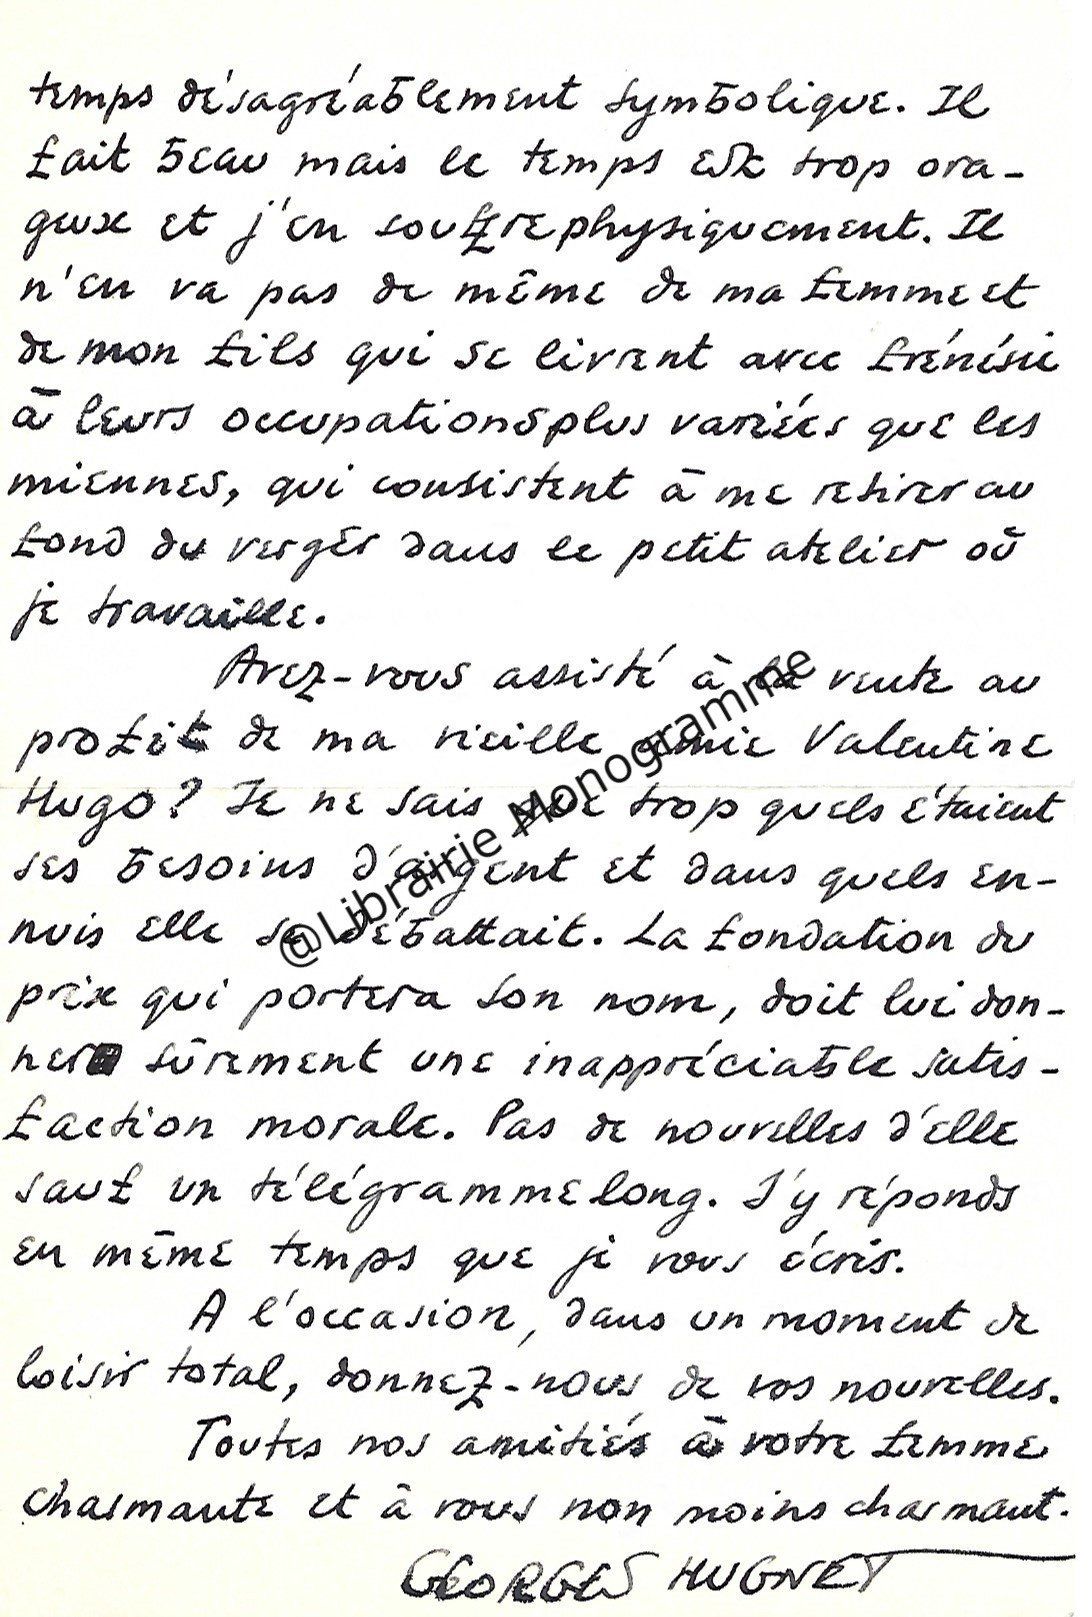 temps désagréablement symbolique. Il
fait beau mais le temps est trop ora-
geux et j'en souffre physiquement. Il
n'en va pas de même de ma femme et
de mon fils qui se livrent avec frénésie
à leurs occupations plus variées que les
miennes, qui consistent à me retirer au
fond du verger dans le petit atelier où
je travaille.
Avez-vous assisté à la vente au
profit de ma vieille amie Valentine
Hugo? Je ne sais que trop quels étaient
ses besoins d'argent et dans quels en-
nuis elle se débattait. La fondation du
prix qui portera son nom, doit lui don-
ner sûrement une inappréciable satis-
faction morale. Pas de nouvelles d'elle
sauf un télégramme long. J'y réponds
en même temps que je vous écris.
A l'occasion, dans un moment de
loisir total, donnez-nous de vos nouvelles.
Toutes nos amitiés à votre femme
charmante et à vous non moins charmant.
GEORGES HUGNET
@Librairie Monogramme